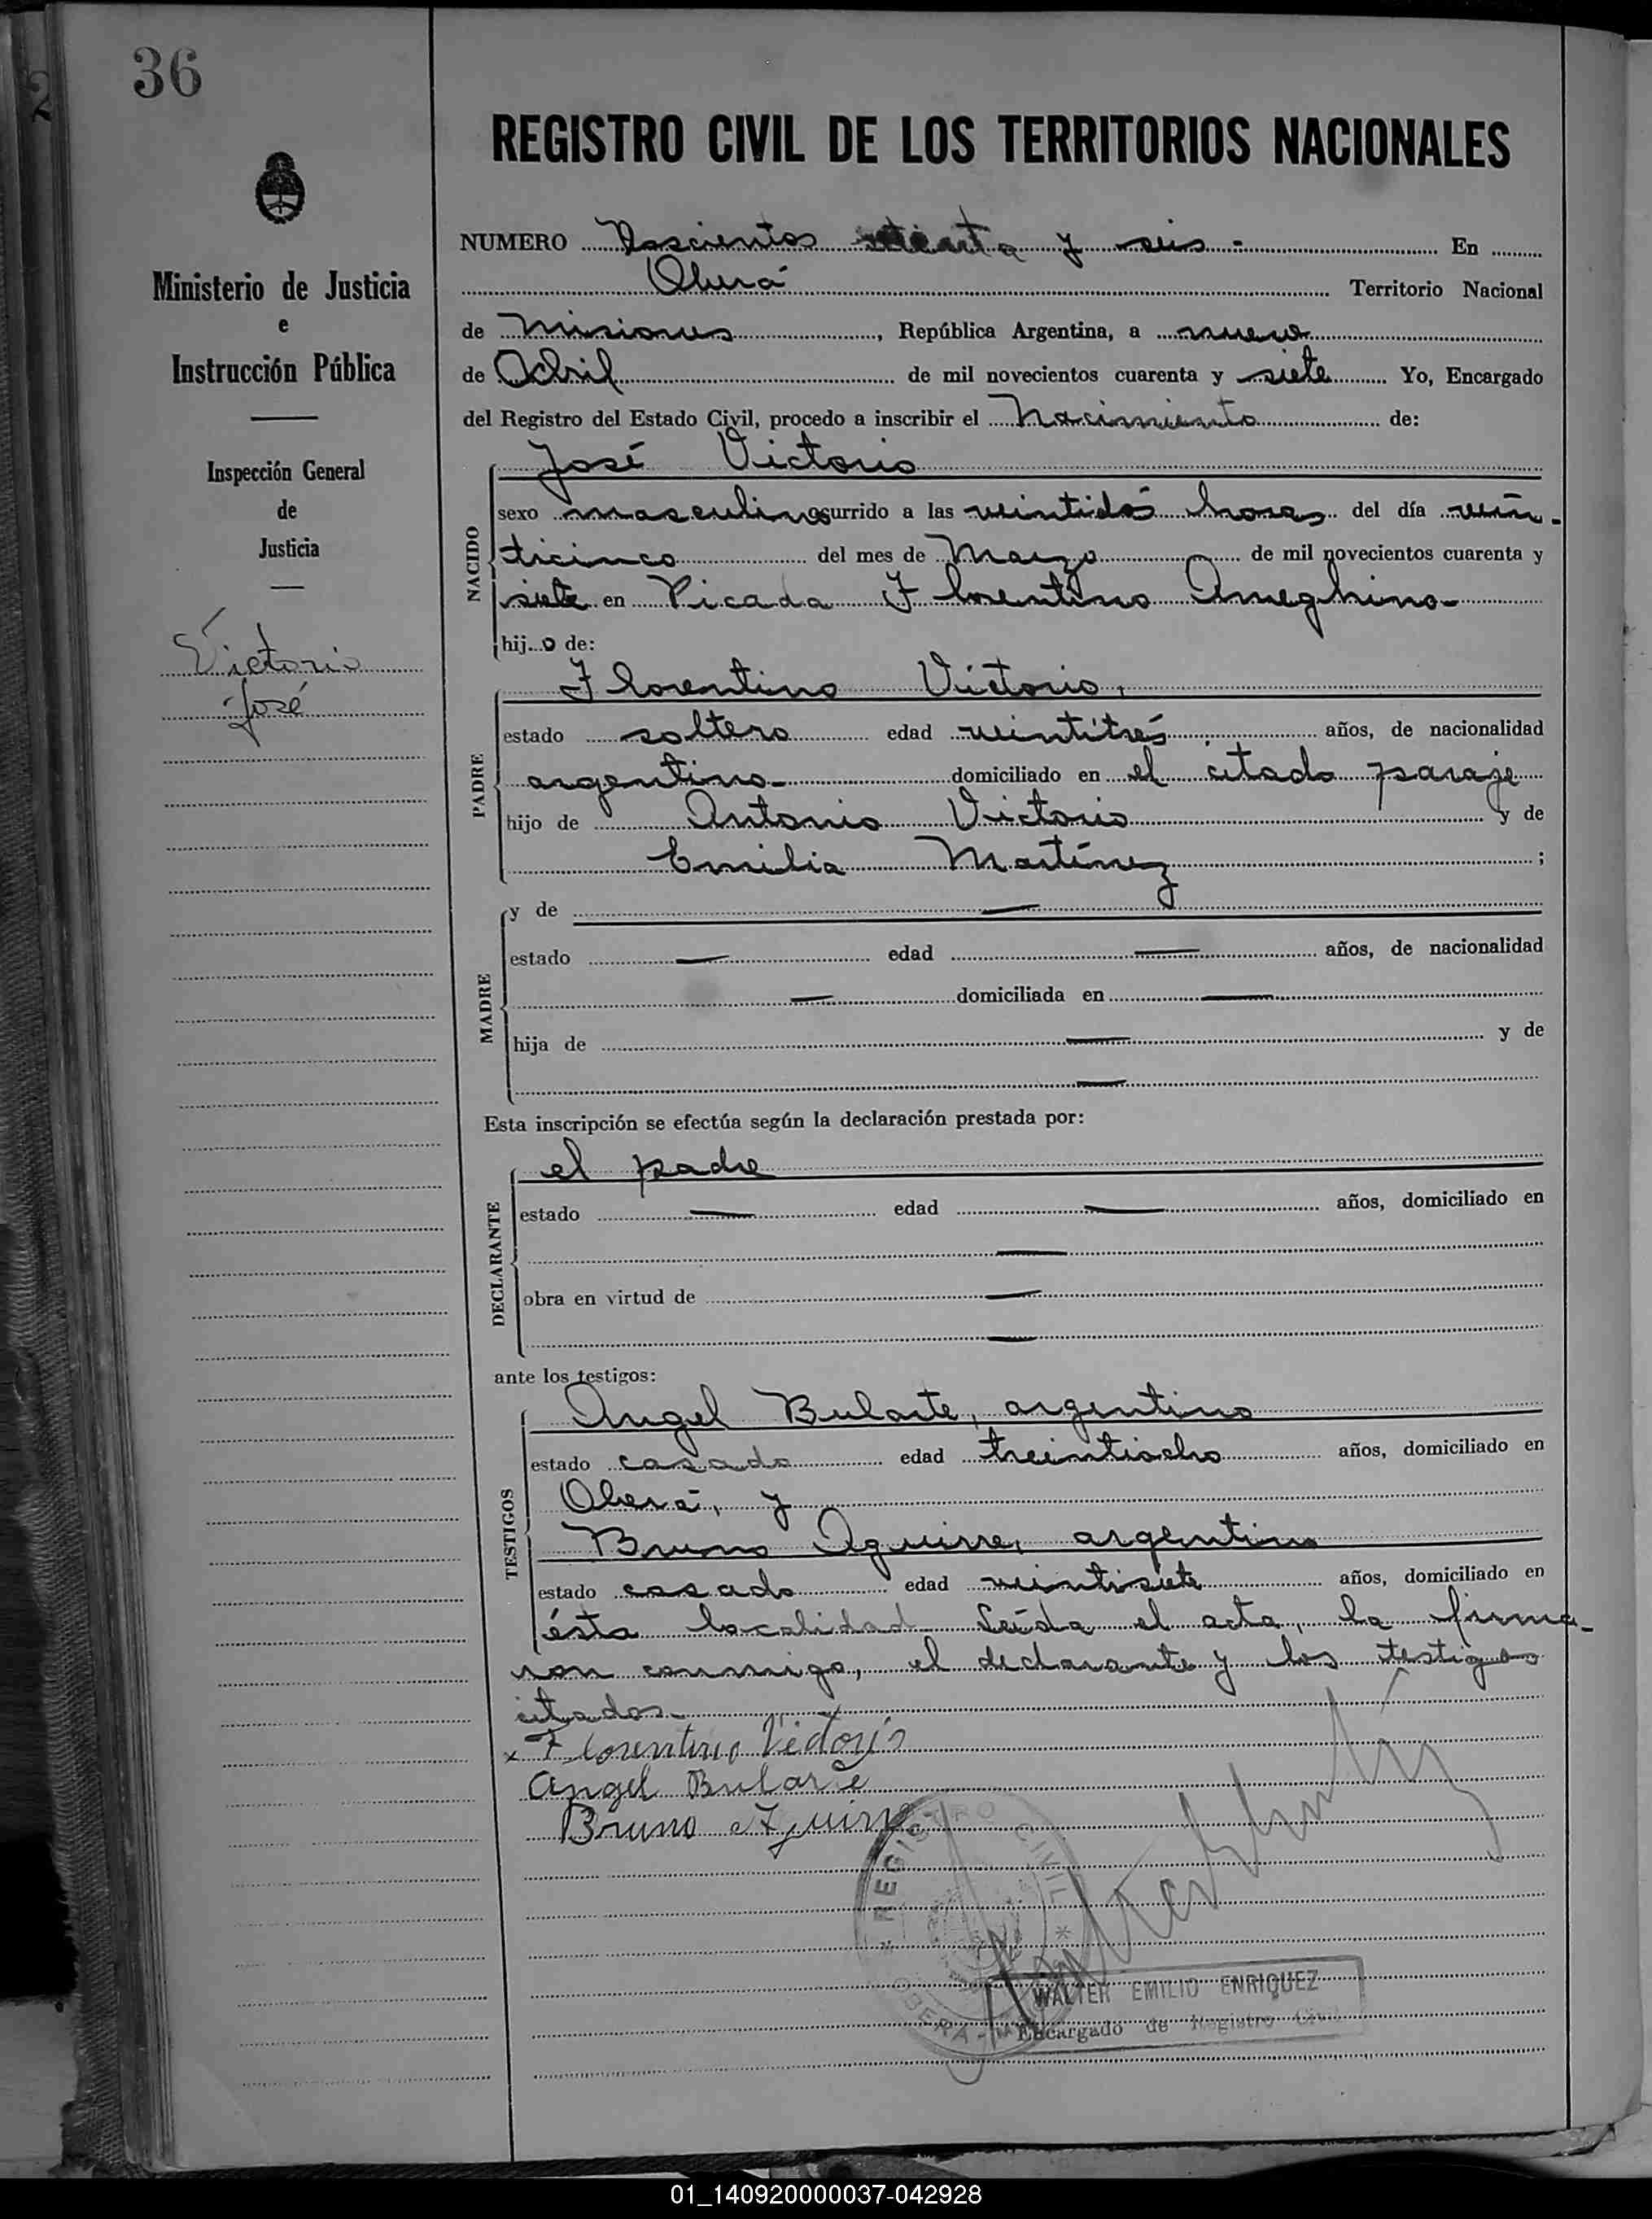 36
REGISTRO CIVIL DE LOS TERRITORIOS NACIONALES
Ministerio de Justicia
e
Instrucción Pública
Inspección General
de
Justicia
Victorio
José
NUMERO Doscientos y seis.- En
Oberá Territorio Nacional
de Misiones, República Argentina, a nueve
de Abril de mil novecientos cuarenta y siete Yo, Encargado
del Registro del Estado Civil, procedo a inscribir el Nacimiento de:
NACIDO
José Victorio
sexo masculino ocurrido a las veintidós horas del día vein-
ticinco del mes de Marzo de mil novecientos cuarenta y
siete en Picada Florentino Ameghino-
hijo de:
PADRE
Florentino Victorio,
estado soltero edad veintitrés años, de nacionalidad
argentino- domiciliado en el citado paraje
hijo de Antonio Victorio y de
Emilia Martínez ;
MADRE
y de —
estado — edad — años, de nacionalidad
— domiciliada en —
hija de — y de
—
Esta inscripción se efectúa según la declaración prestada por:
DECLARANTE
el padre
estado — edad — años, domiciliado en
—
obra en virtud de —
—
ante los testigos:
TESTIGOS
Angel Bularte, argentino
estado casado edad treintiocho años, domiciliado en
Oberá, y
Bruno Aguirre, argentino
estado casado edad veintisiete años, domiciliado en
ésta localidad Leída el acta, la firma-
ron conmigo, el declarante y los testigos
citados.-
x Florentino Victorio
Angel Bularte
Bruno Aguirre
REGISTRO CIVIL
OBERA
WALTER EMILIO ENRIQUEZ
Encargado de Registro Civil
01_140920000037-042928